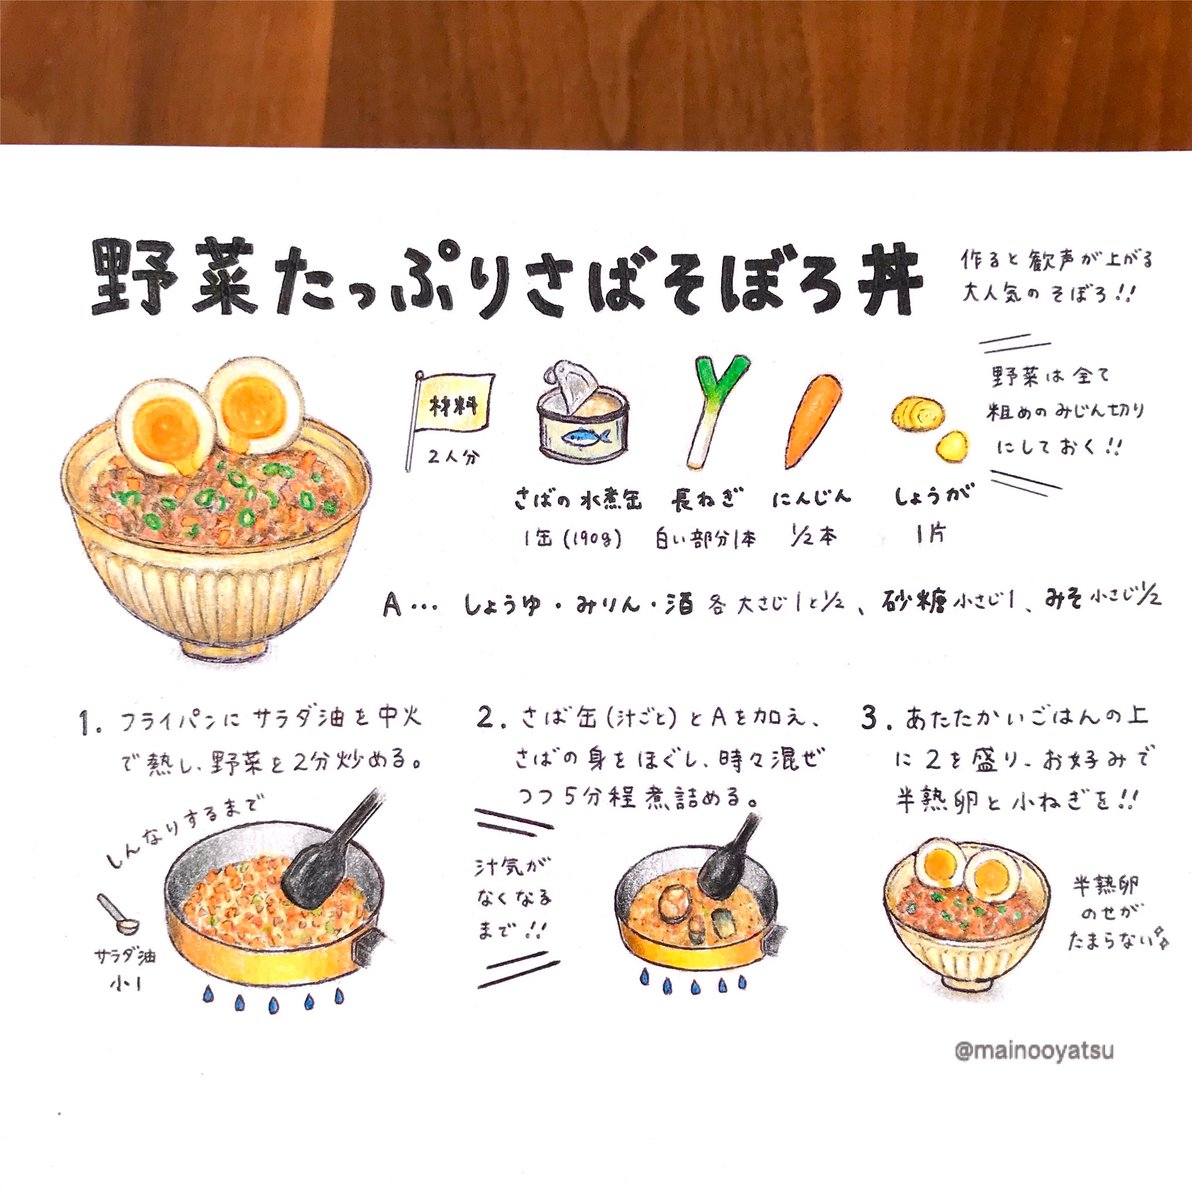 野菜たっぷりさばそぼろ丼
作ると歓声が上がる
大人気のそぼろ!!
材料
2人分
さばの水煮缶
1缶(190g)
長ねぎ
白い部分1本
にんじん
1/2本
しょうが
1片
野菜は全て
粗めのみじん切り
にしておく!!
A… しょうゆ・みりん・酒 各大さじ1と1/2、砂糖小さじ1、みそ小さじ1/2
1. フライパンにサラダ油を中火
で熱し、野菜を2分炒める。
しんなりするまで
サラダ油
小1
2. さば缶(汁ごと)とAを加え、
さばの身をほぐし、時々混ぜ
つつ5分程煮詰める。
汁気が
なくなる
まで!!
3. あたたかいごはんの上
に2を盛り、お好みで
半熟卵と小ねぎを!!
半熟卵
のせが
たまらない
@mainooyatsu